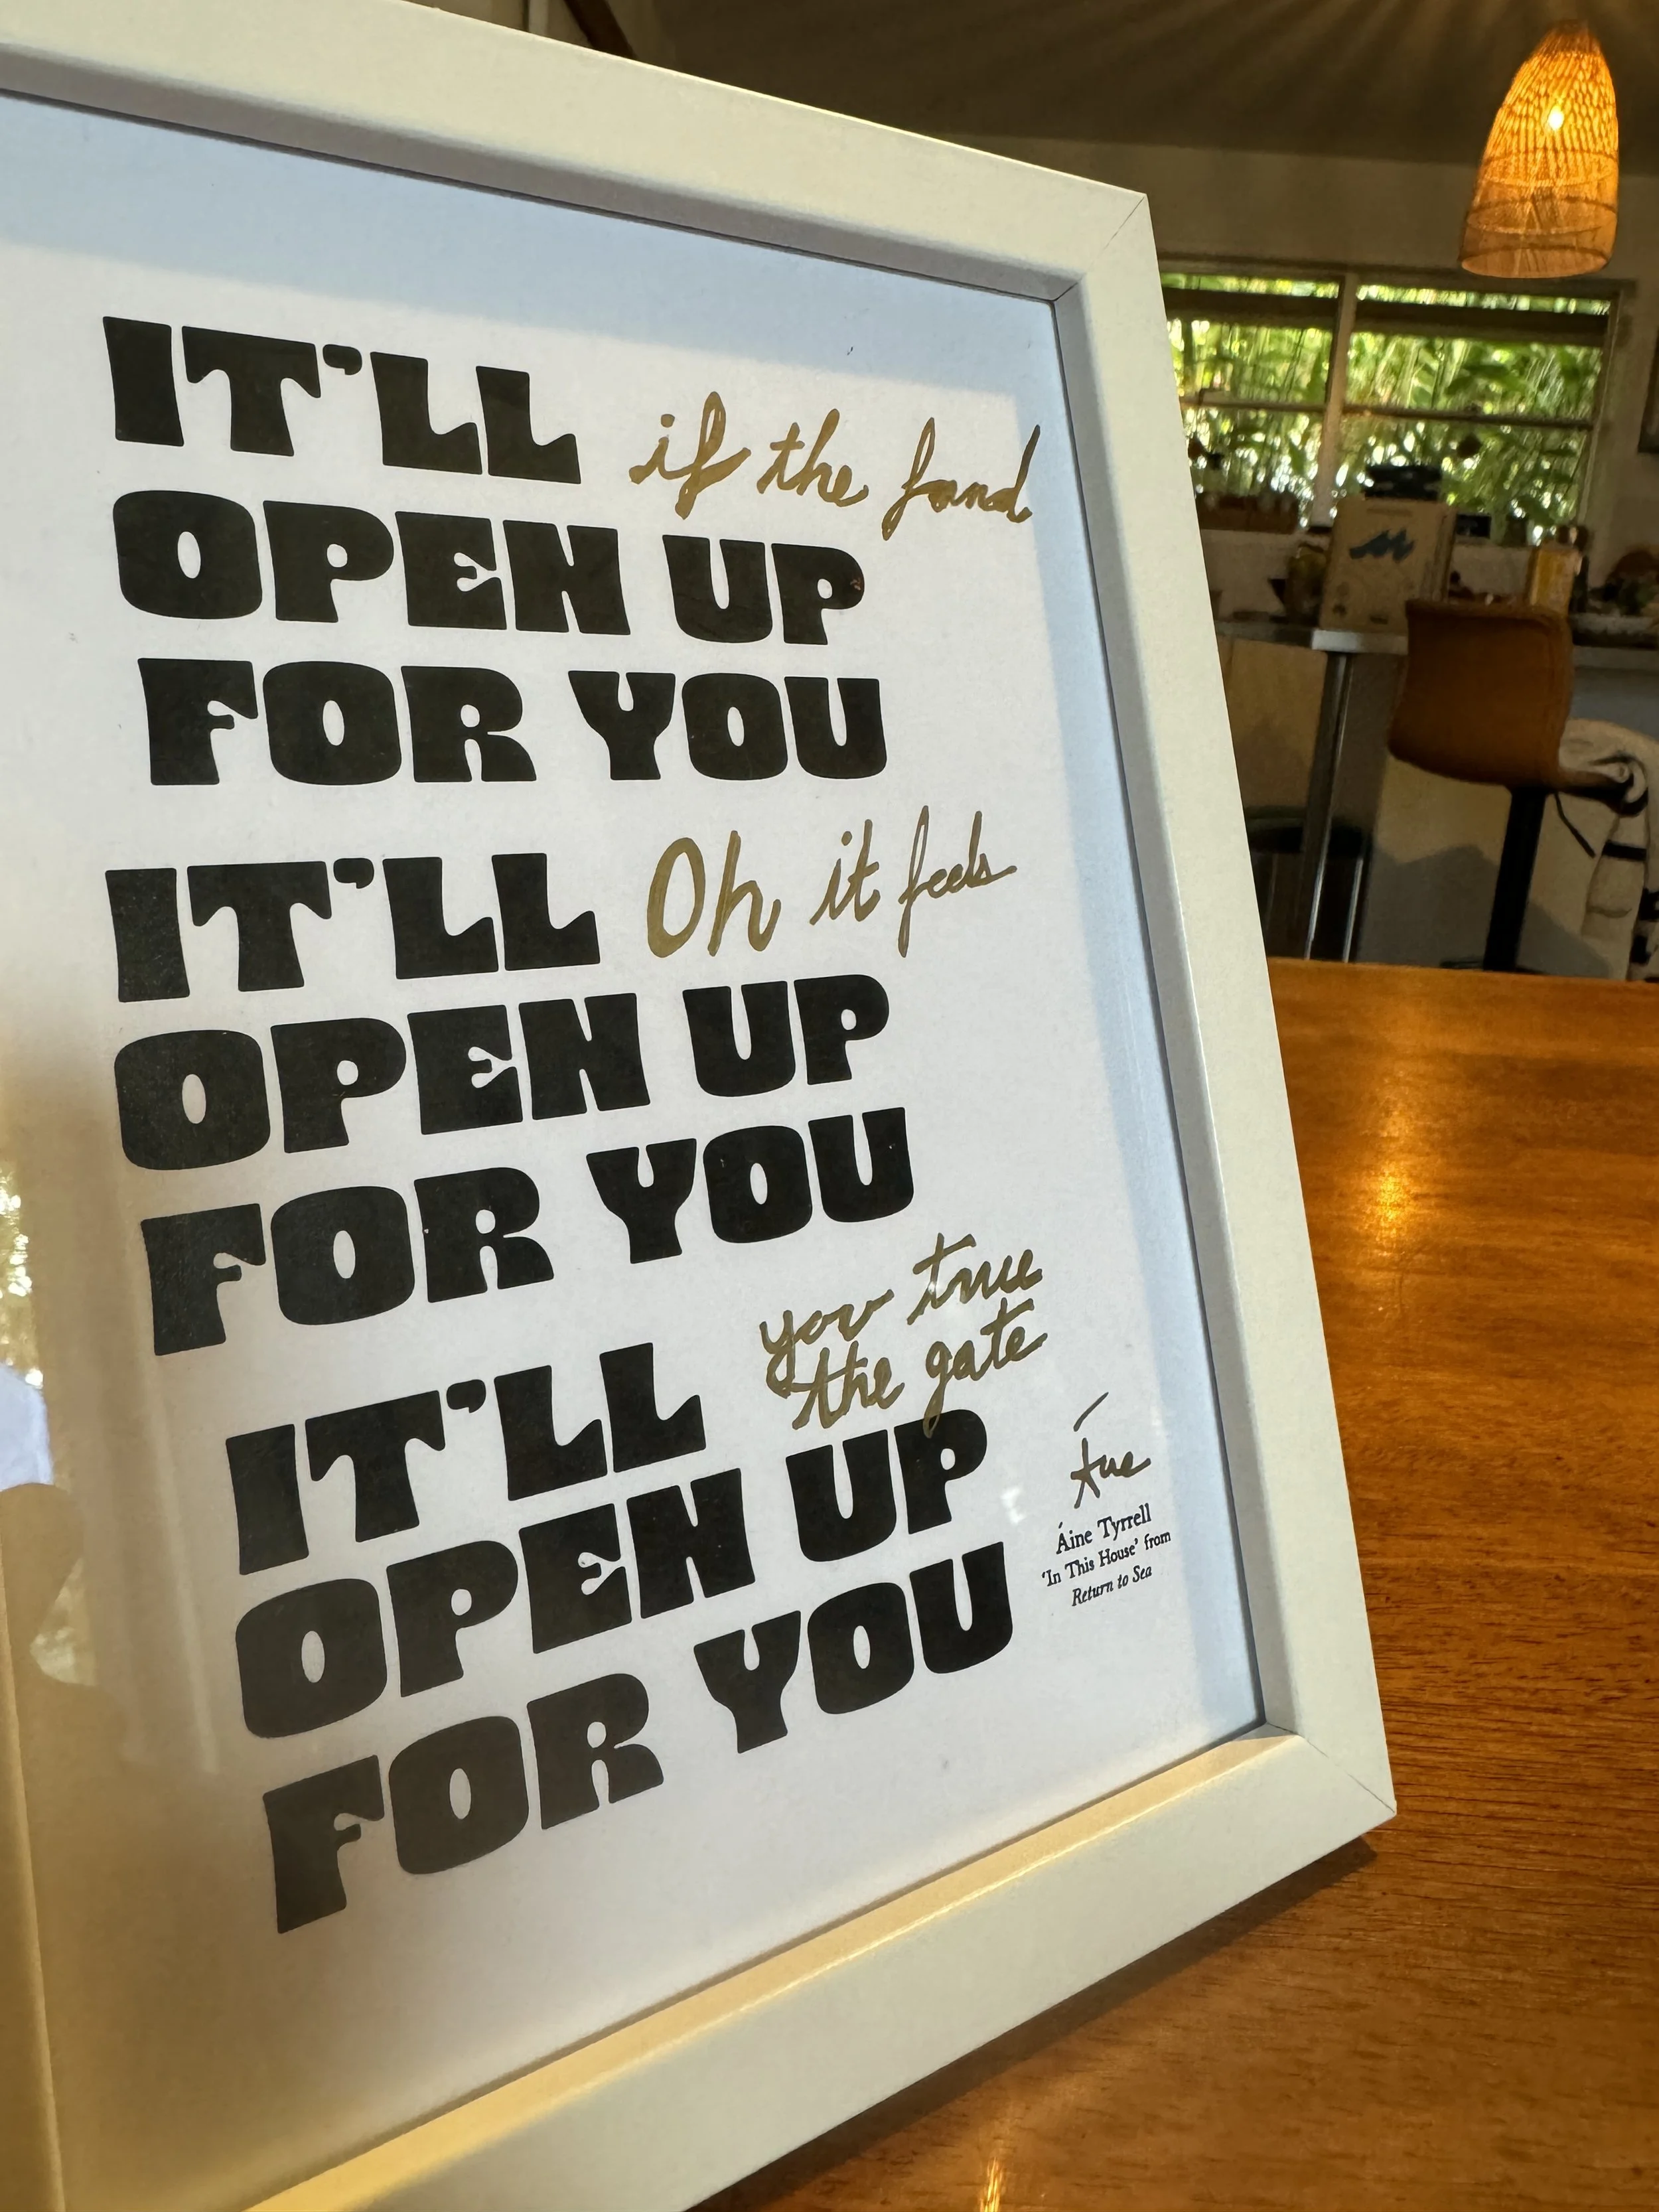 IT'LL if the
OPEN UP
FOR YOU
IT'LL Oh it feels
OPEN UP
FOR YOU
you true
the gate
IT'LL
OPEN UP
FOR YOU
Áine Tyrrell
'In This House' from
Return to Sea